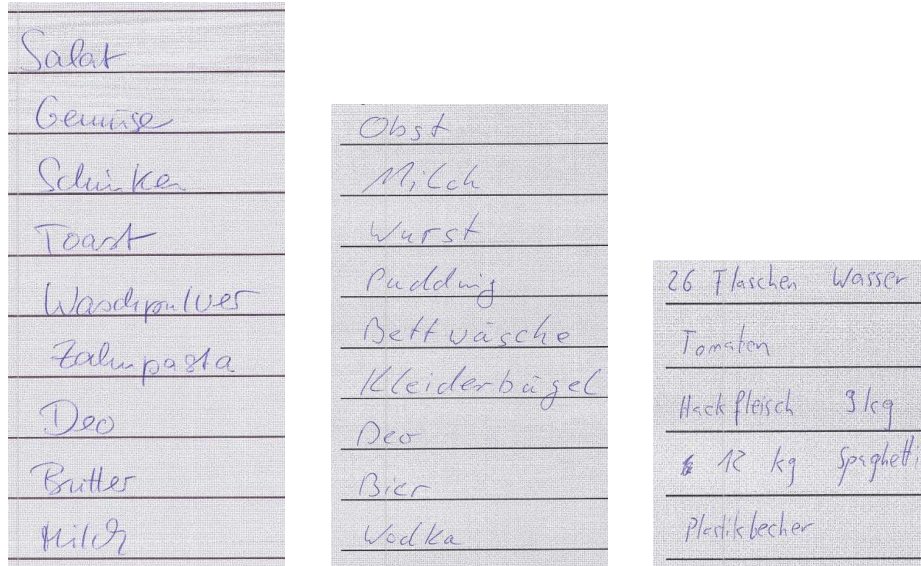 Salat
Gemüse
Schinken
Toast
Waschpulver
Zahnpasta
Deo
Butter
Milch
Obst
Milch
Wurst
Pudding
Bettwäsche
Kleiderbügel
Deo
Bier
Wodka
26 Flaschen Wasser
Tomaten
Hackfleisch 9 kg
12 kg Spaghetti
Plastikbecher